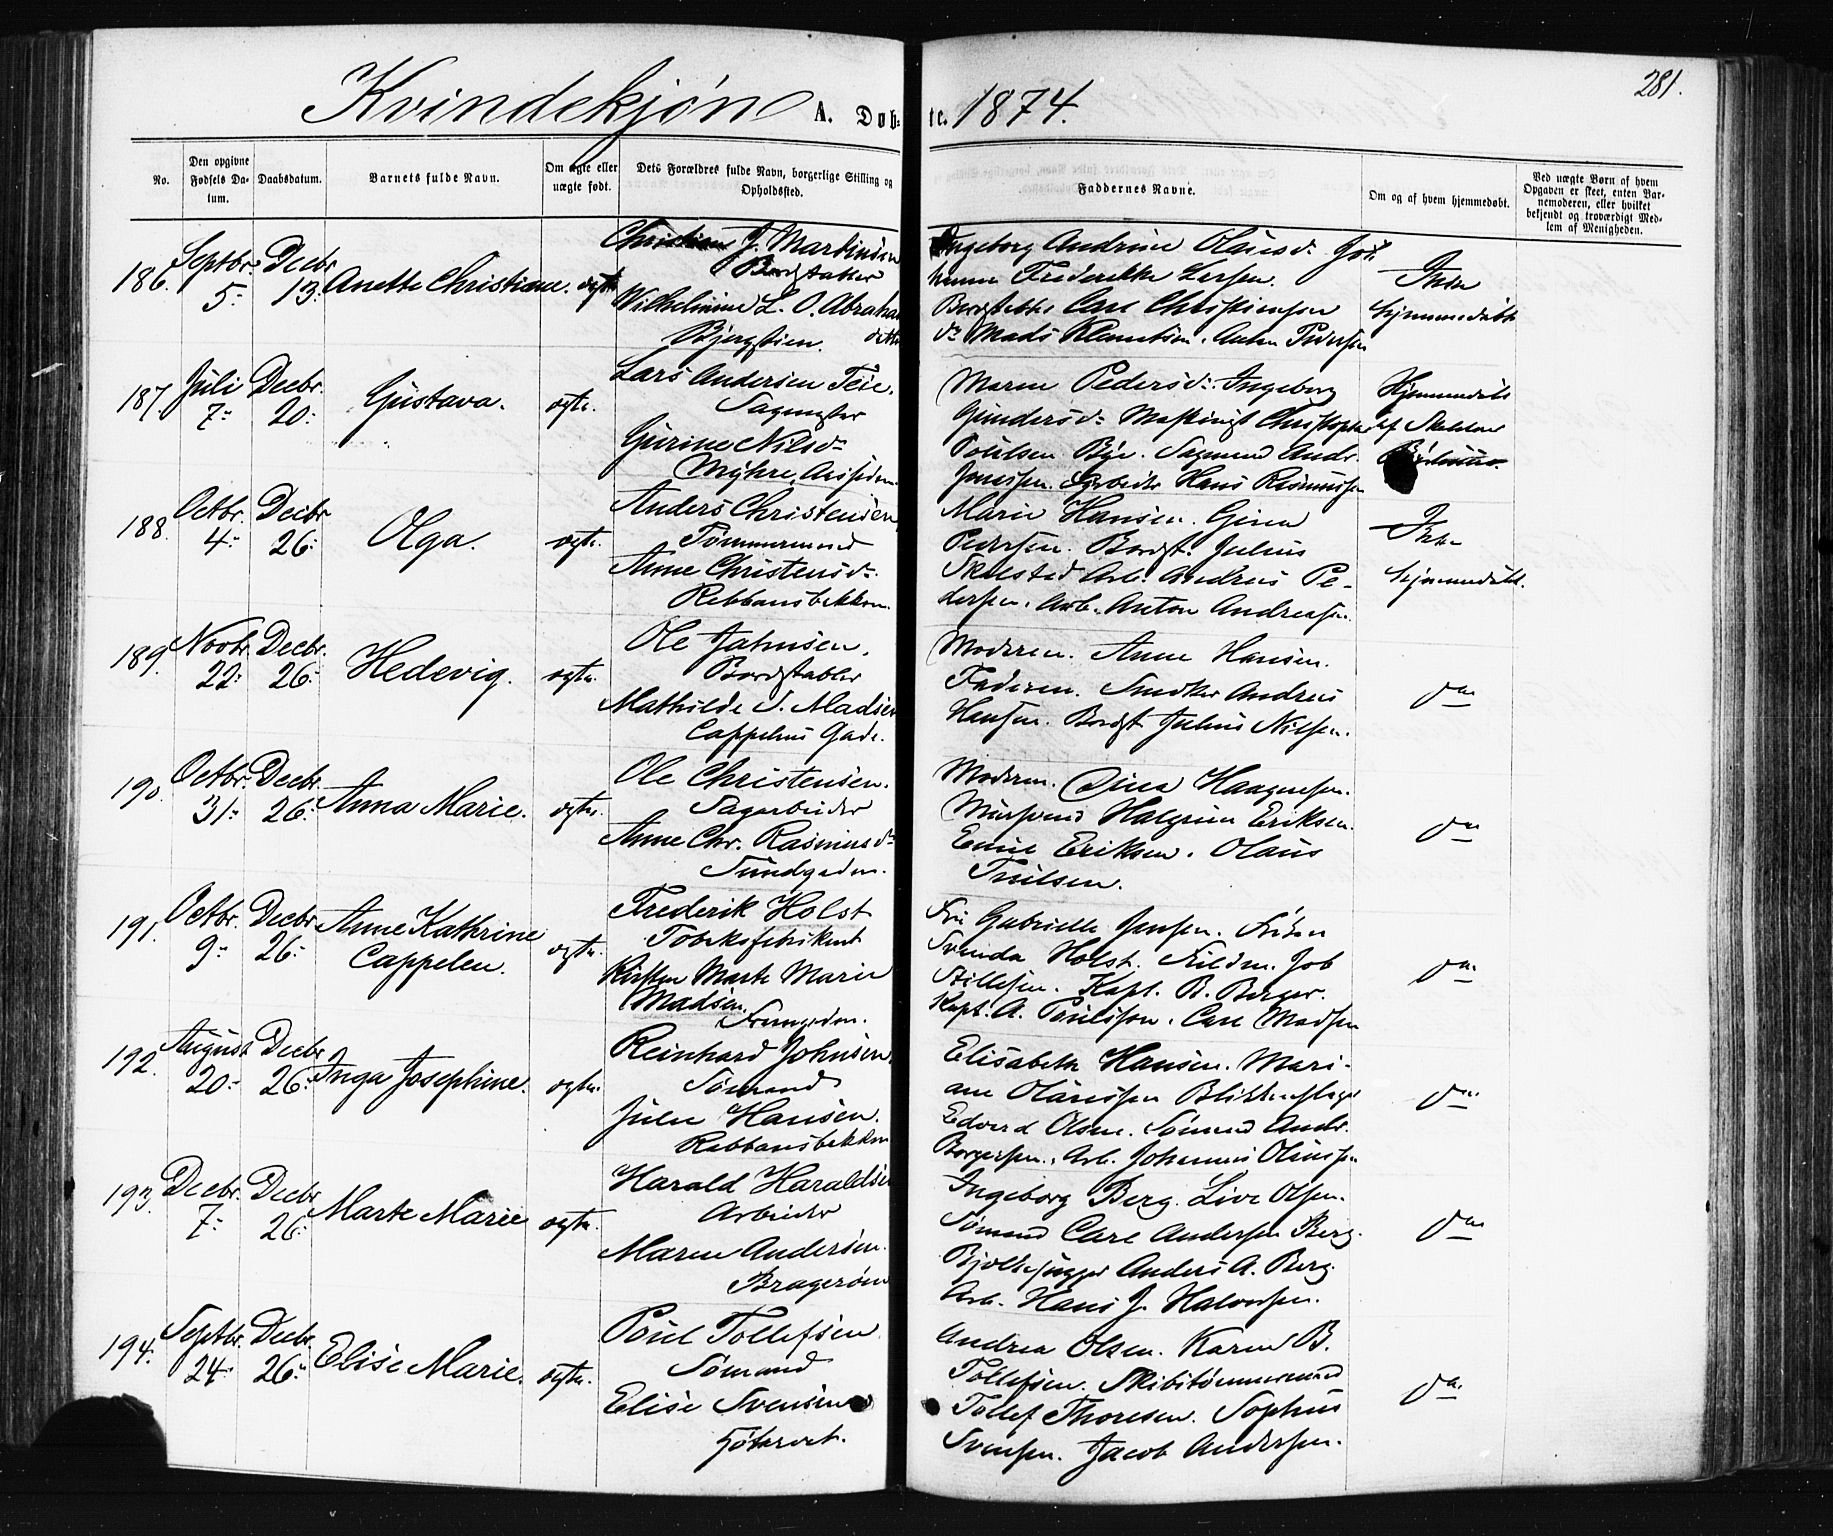 Kvindekjøn A. Døb-
te. 1874.
281.
No.
Den opgivne
Fødsels Da-
tum.
Daabsdatum.
Barnets fulde Navn.
Om ægte eller
uægte født.
Dets Forældres fulde Navn, borgerlige Stilling og
Opholdssted.
Faddernes Navne.
Om og af hvem hjemmedøbt.
Ved uægte Børn af hvem
Opgaven er skeet, enten Bar-
nemoderen, eller hvilket
bekjendt og troværdigt Med-
lem af Menigheden.
186.
Septbr.
5
Decbr
13
Anette Christiane.
ægte
J. Martinsen
Bordstabler
Wilhelmine L. O. Abraham
Bjergstien.
Ingeborg Andrine Olausd. Jo
hanne Frederikke Larsen.
Bordstabler Carl Christiansen
do Mads Klemetsen. Anton Pedersen
Ikke
hjemmedøbt
187
Juli
7
Decbr.
20
Gustava.
ægte.
Lars Andersen Teie.
Sagmester
Gurine Nilsd.
Myhre,
Maren Pedersd. Ingeborg
Gundersd. Christopher
Poulsen Bye. Sagmend Andr.
Jensen. Arbeider Hans Rasmussen
Hjemmedøbt
af
188.
Octbr.
4
Decbr
26
Olga.
ægte.
Anders Christensen
Tømmermand
Anne Christensd.
Rebbansbekken.
Marie Hansen. Gina
Pedersen. Bordst. Julius
Skelstad Arb. Andreas Pe-
dersen. Arb. Anton Andreasen.
Ikke
hjemmedøbt.
189.
Novbr.
22
Decbr.
26
Hedevig.
ægte.
Ole Jahnsen.
Bordstabler
Mathilde J. Madsen
Cappelens Gade.
Moderen. Anne Hansen.
Faderen. Snedker Andreas
Hansen. Bordst. Julius Nilsen.
do
190.
Octbr.
31
Decbr.
26
Anna Marie.
ægte.
Ole Christensen.
Sagarbeider
Anne Chr. Rasmusd.
Sundgaden.
Moderen. Dina Haagensen.
Mursvend Halgrim Eriksen.
Emil Eriksen. Olaus
Truilsen.
do
191.
Octbr.
9
Decbr
26
Anne Kathrine
Cappelen.
ægte.
Frederik Holst
Tobaksfabrikant
Kirsten Marte Marie
Madsen.
Fru Gabrielle Jensen. Frøken
Svenda Holst. Job
Stillesen. Kapt. B. Berger.
Kapt. A. Paulsson. Carl Madsen
do
192.
August
20
Decbr
26
Inga Josephine.
ægte.
Reinhard Johnsen
Sømand
Julie Hansen.
Rebbansbekken
Elisabeth Hansen. Mari-
ane Olaussen Blikkenslager
Edvard Olsen. Sømand Andr.
Borgersen. Arb. Johannes Olaussen
do
193.
Decbr.
7
Decbr
26
Marte Marie
ægte.
Harald Haraldsen
Arbeider
Maren Andersen.
Bragerøen
Ingeborg Berg. Live Olsen.
Sømand Carl Andersen Berg.
Bjelkehugger Anders A. Berg.
Arb. Hans J. Halvorsen.
do
194.
Septbr.
24
Decbr.
26
Elise Marie.
ægte.
Poul Tollefsen
Sømand
Elise Svensen
Andrea Olsen. Karen B.
Tollefsen. Skibstømmermand
Tollef Thoresen. Sophus
Svensen. Jacob Andersen.
do